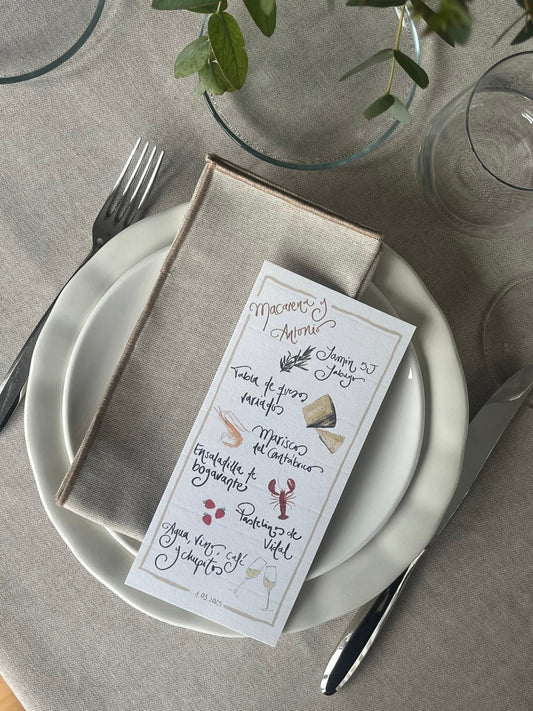 Macarena y
Antonio
Jamón 5J
Jabugo
Tabla de quesos
variados
Mariscos
del Cantábrico
Ensaladilla de
bogavante
Pastelinos de
Vidal
Agua, vino, café
y chupitos